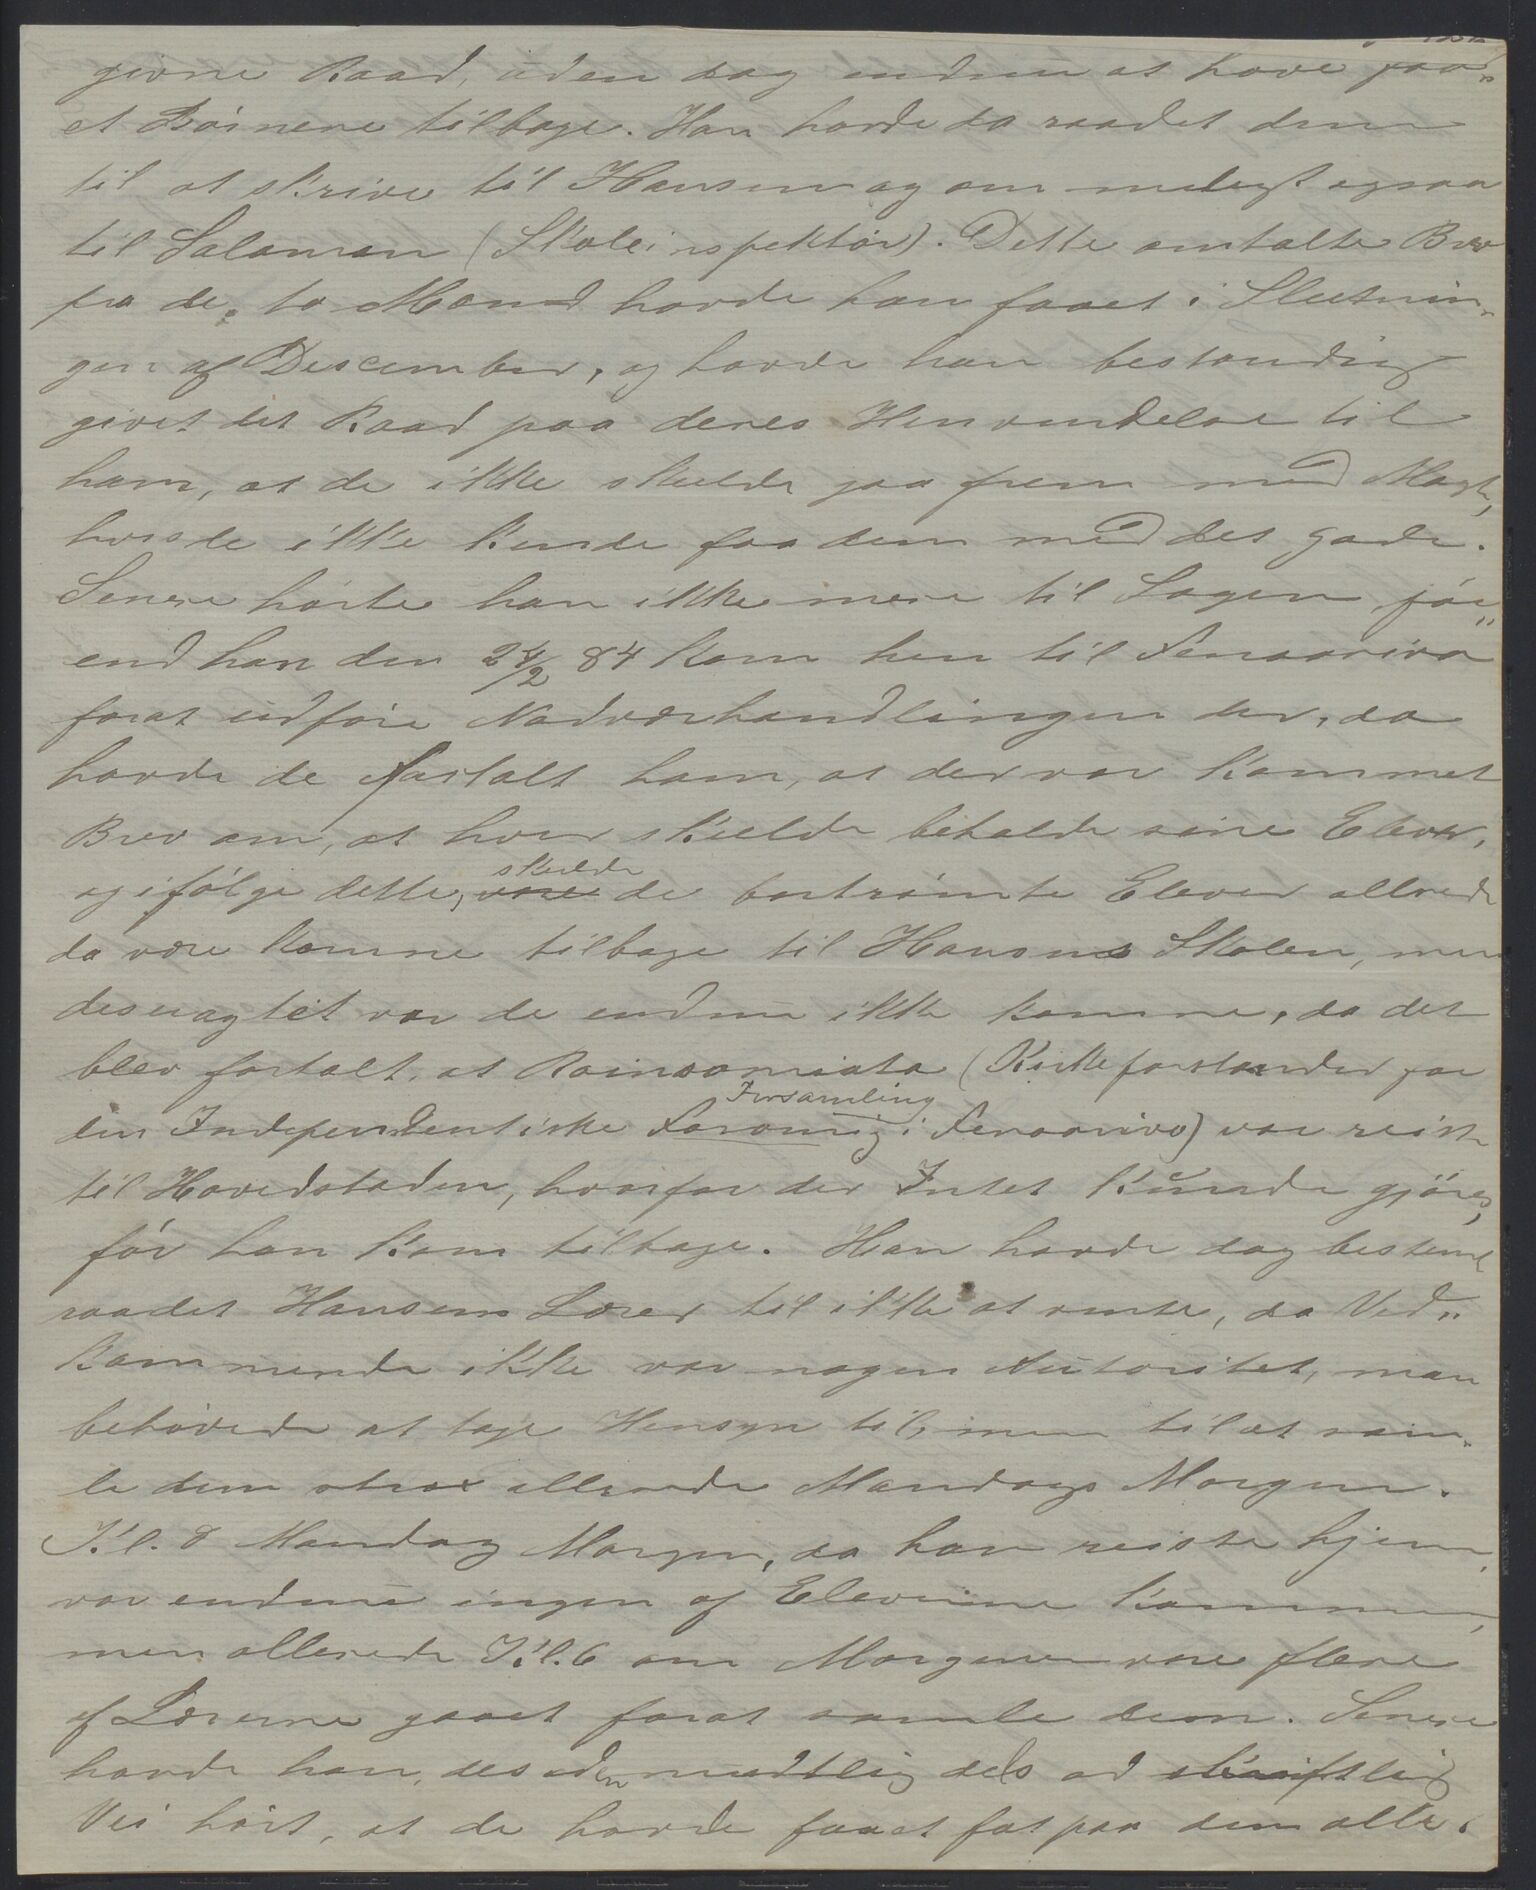 givne Raad, uden dog endnu at have faa„
et Börnene tilbage. Han havde da raadet dem
til at skrive til Hansen og om muligt ogsaa
til Salamon (Skoleinspektör). Dette omtalte Brev
fra de to Mænd havde han faaet i Slutnin„
gen af Descember, og havde han bestandig
givet det Raad paa deres Henvendelse til
ham, at de ikke skulde gaa frem med Magt,
hvis de ikke kunde faa dem med det gode.
Senere hörte han ikke mere til Sagen för„
end han den 24/2 84 kom hen til Fenoarivo
forat udföre Nadverhandlingen der, da
havde de fortalt ham, at der var kommet
Brev om, at hver skulde beholde sine Elever,
og ifölge dette, skulde de bortrömte Elever allerede
da være komne tilbage til Hansens Skolen, men
desuagtet var de endnu ikke komne, da det
blev fortalt, at Rainsomiata (Kirkeforstander for
den Independentiske Forsamling i Fenoarivo) var reist
til Hovedstaden, hvorfor der Intet kunde gjöres,
för han kom tilbage. Han havde dog bestemt
raadet Hansens Lærer til ikke at vente, da Ved„
kommende ikke var nogen Autoritet, man
behövede at tage Hensyn til, men til at sam„
le dem strax allerede Mandags Morgen.
Kl. 8 Mandag Morgen, da han reiste hjem,
var endnu ingen af Eleverne kommen,
men allerede Kl. 6 om Morgenen vare flere
af Lærerne gaaet forat samle dem. Senere
havde han, desuden mundtlig dels ad skriftlig
Vei hört, at de havde faaet fat paa dem alle.